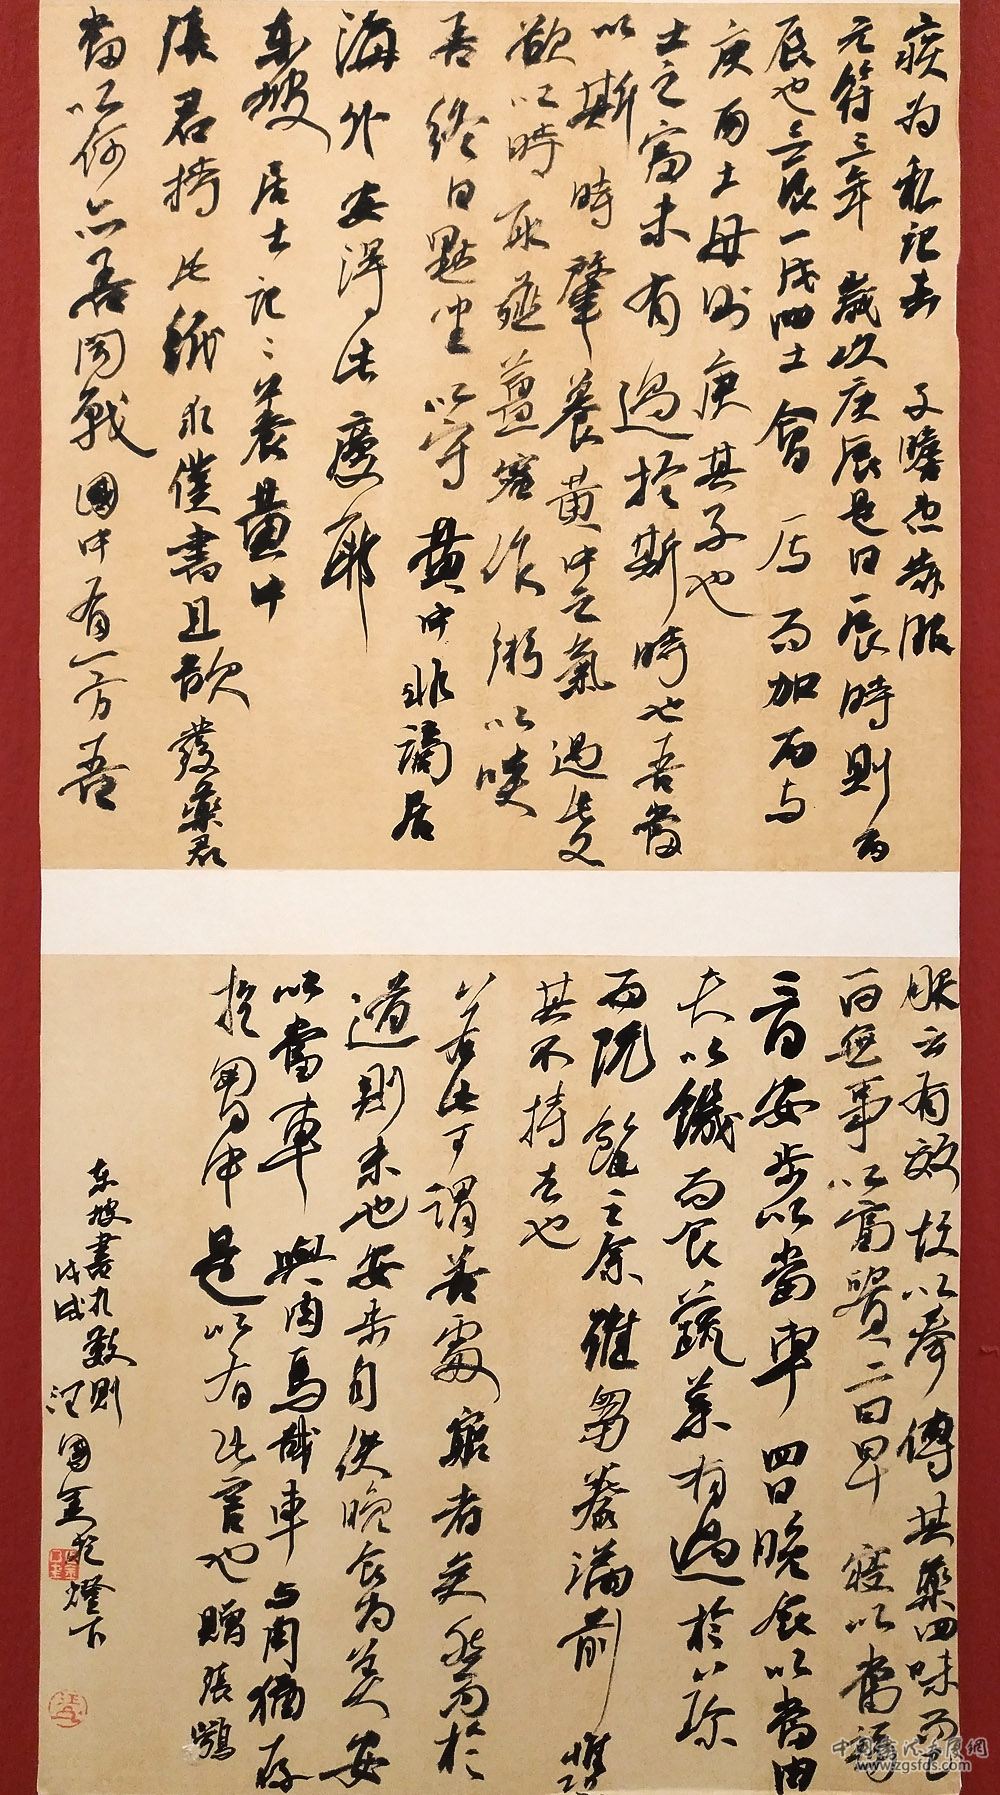 疾为私記 子瞻
元符三年歲次庚辰是日辰時則丙
辰也三辰一戊四土會焉而加丙与
庚丙土母則庚其子也
土之富未有過於斯時也吾當
以斯時肇養黄中之氣過此又
欲以時取薤薑蜜作粥以啖
吾終日默坐以守黄中非謫居
海外安得此慶耶
東坡居士記記養黄中
張君持此紙求僕書且欲發藥君
當以何品吾聞戰國中有一方吾
服之有效故以奉傅其藥四味而已
一曰無事以當貴二曰早寢以當富
三曰安步以當車四曰晚食以當肉
夫以饑而食蔬菜有過於八珍
而既飽之余雖芻豢满前惟恐
其不持去也
若此可謂善處窮者矣然而於
道則未也安樂自供晚食为美安
以當車與肉為哉車与肉猶存
於胸中是以有此言也贈張鶚
東坡書札數則
戊戌 汪國金於燈下
www.zgsfds.com